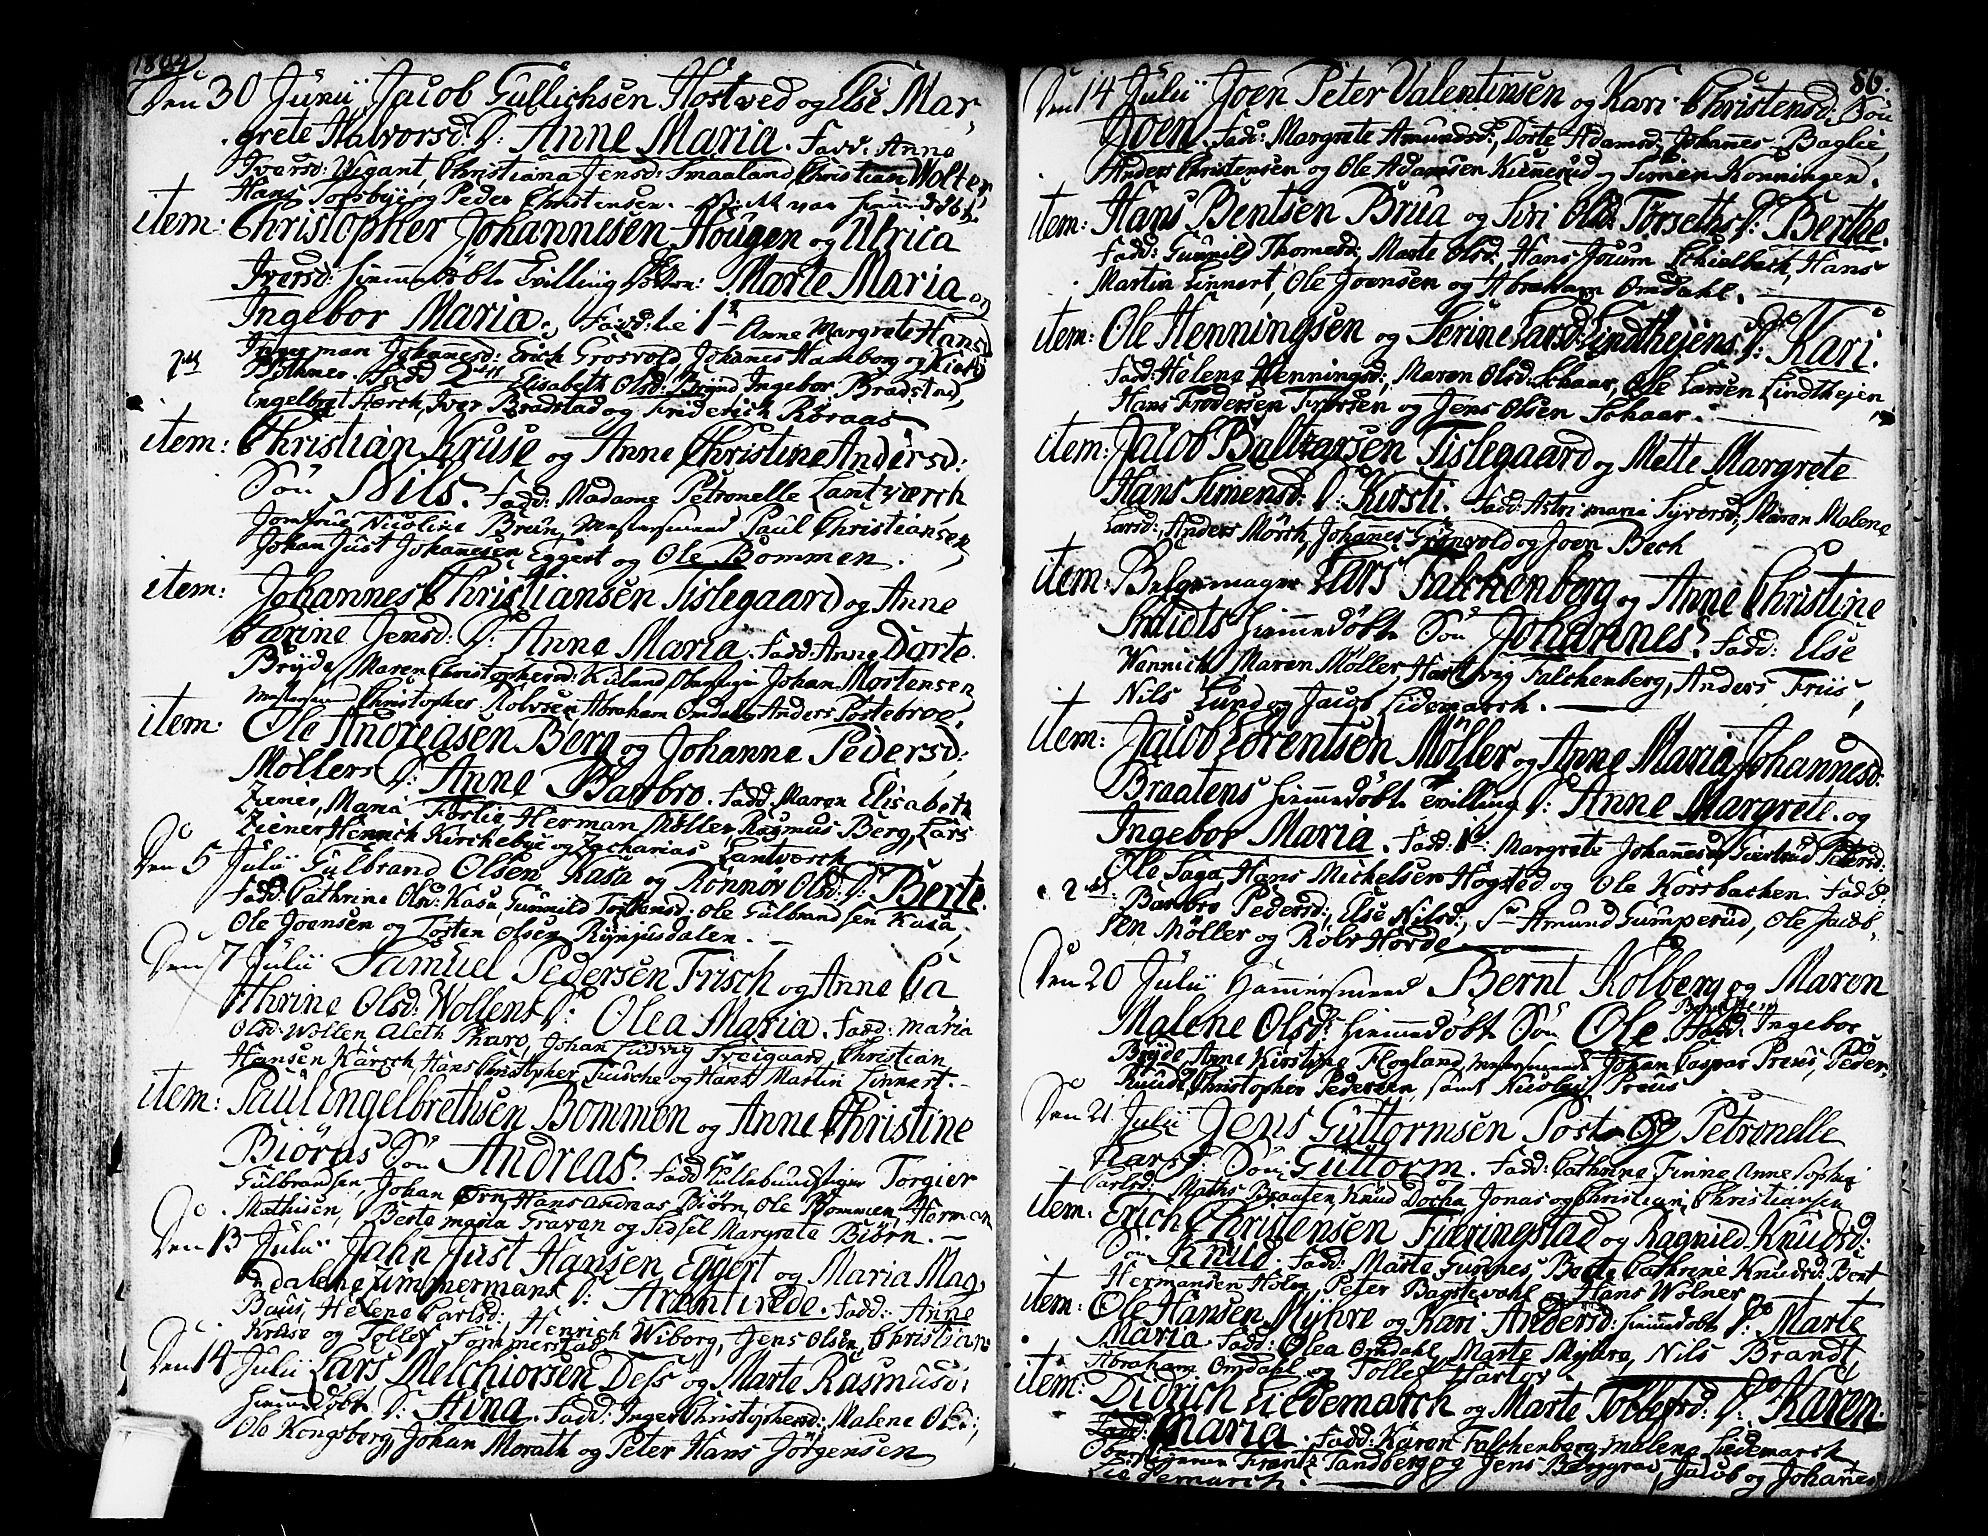 1804
Den 30 Junii Jacob Gullichsen Hostved og Else Mar-
grete Halvorsd: D: Anne Maria. Fadd: Anna
Iversd: Wigant, Christiana Jensd: Smaaland, Christian Wolter,
Hans Torsbye og Peder Christensen.
item: Christopher Johannesen Hougen og Ulrica
Iversd: hiemmedøbte Tvilling Døttre: Marte Maria og
Ingebor Maria. Fadd: til 1ste Anne Margrete Hans
Johannesd: Erich Grosvold, Johanes Hamborg og
Bothner. Fadd 2den Elisabeth Olsd: Brynd, Ingebor Bradstad,
Engelbret Hærch, Iver Bradstad og Friderich Røraas
item: Christian Kruse og Anne Christine Andersd:
Søn Nils. Fadd: Madame Petronelle Lantværch
Jomfrue Nicoline Brun, Paul Christiansen,
Johan Just Johannesen Eggert og Ole Bommen.
item: Johannes Christiansen Tislegaard og Anne
Carine Jensd: D: Anne Maria. Fadd: Anne Dorte
Bryde, Maren Christophersd: Kiiland Johan Mortensen
Christopher Robrsen Abraham Omdal og Anders Postebroe.
item: Ole Andreasen Berg og Johanne Pedersd:
Møllers D: Anne Barbro. Fadd Maren Elisabeth
Ziener, Maria Torlie Herman Møller, Rasmus Berg, Lars
Ziener, Henrich Kirchebye og Zacharias Lantværch
Den 5 Julii Gulbrand Olsen Kasa og Rønnøv Olsd: D: Berte.
Fadd: Cathrine Olsd: Kasa, Gunnild Torstensd: Ole Gulbrandsen Kasa,
Ole Joensen og Tosten Olsen Rynjusdalen.
Den 7 Julii Samuel Pedersen Frisch og Anne Ca
thrine Olsd: Wollens D: Olea Maria. Fadd: Maria
Olsd: Wollen, Aleth Pharo, Johan Ludvig Sveigaard, Christian
Hansen Karsch, Hans Christopher Tusche og Hans Martin Linnert.
item: Paul Engelbrethsen Bommen og Anne Christine
Biørns Søn Andreas. Fadd Torgier
Gulbrandsen, Johan Ørn, Hans Andreas Biørn, Ole Bommen, Herman
Mathisen, Berte Maria Graven og Sidsel Margrete Biørn.
Den 13 Julii Jahn Just Hansen Eggert og Maria Mag-
dalena Timmermans D: Arentirede. Fadd: Anne
Baus, Helene Carlsd:, Henrich Wiborg, Jens Olsen, Christian
Kruse og Tollef Sommerstad
Den 14 Julii Lars Melchiorsen Dess og Marte Rasmusd:
hiemmedøbt D: Stina. Fadd: Inger Christophersd: Malene Olsd:,
Ole Kongsberg, Johan Morath og Peter Hans Jørgensen
86.
Den 14 Julii Joen Peter Valentinsen og Kari Christensd: Søn
Joen. Fadd: Margrete Amundsd:, Dorte Adamsd, Johannes Baglie,
Anders Christensen og Ole Adamsen Kiennerud og Simen Konningen.
item: Hans Bentsen Brua og Siri Olsd: Torseths D: Berthe.
Fadd: Gunnild Thomesd: Marte Olsd: Hans Jørum Schielbach, Hans
Martin Linnert, Ole Joensen og Abraham Omdahl.
item: Ole Henningsen og Serine Larsd: Lindthejens D: Kari.
Fadd: Helene Henningsd:, Maren Olsd: Schaar, Ole Larsen Lindthejen
Hans Frodersen og Jens Olsen Schaar.
item: Jacob Baltzarsen Tislegaard og Mette Margrete
Hans Simensd: D: Kirsti. Fadd: Astri Maria Syversd, Maren Malene
Larsd:, Anders Mørch, Johannes Grønvold og Joen Bech
item: Lars Falchenberg og Anne Christine
Smidts hiemmedøbte Søn Johannes. Fadd: Else
Wennich, Maren Møller, Hartvig Falchenberg, Anders Friis,
Nils Lund og Jacob Lidemarch.
item: Jacob Lorentsen Møller og Anne Maria Johannesd:
Braatens hiemmedøbt Tvilling D: Anne Margrete og
Ingebor Maria. Fadd: 1ste: Margrete Johannesd, Giertrud Pedersd:
Ole Saga, Hans Michelsen Hogsted og Ole Korsbachen. Fadd:
2den: Barbro Pedersd:, Else Nilsd:, Amund Gumperud, Ole Jacob-
sen Møller og Robr Horde
Den 20 Julii Hammersmed Bernt Kolberg og Maren
Malene Olsd: hiemmedøbt Søn Ole. Fadd: Ingebor
Bryde, Anne Kirstine Flogland, Johan Caspar Preus, Peder
Knud, Christopher Pedersen, samt Nicolay Preus
Den 21 Julii Jens Guttormsen Post og Petronelle
Larsd: Søn Guttorm. Fadd: Cathrine Finne, Anne Sophie
Carlsd:, Mathis Braaten, Knud Docha, Jonas og Christian Christiansen
item: Erich Christensen Fiæringstad og Ragnild Knudsd:
Søn Knud. Fadd: Marte Gunnes, Berte Cathrine Knudsd: Bert
Hermansen Holm, Peter Bagstevold og Hans Wolner
item: Ole Hansen Myhre og Kari Andersd: hiemmedøbt D: Marte
Maria. Fadd: Olea Omdahl, Marte Myhre, Nils Brandt,
Abraham Omdahl og Tollef Hartov
item: Didrich Lidemarch og Marte Tollefsd: D: Karen
Maria. Fadd: Karen Falchenberg, Malene Lidemarch,
Frantz Sandberg og Jens Berggrav, Jacob og Johannes
Lidemarch.